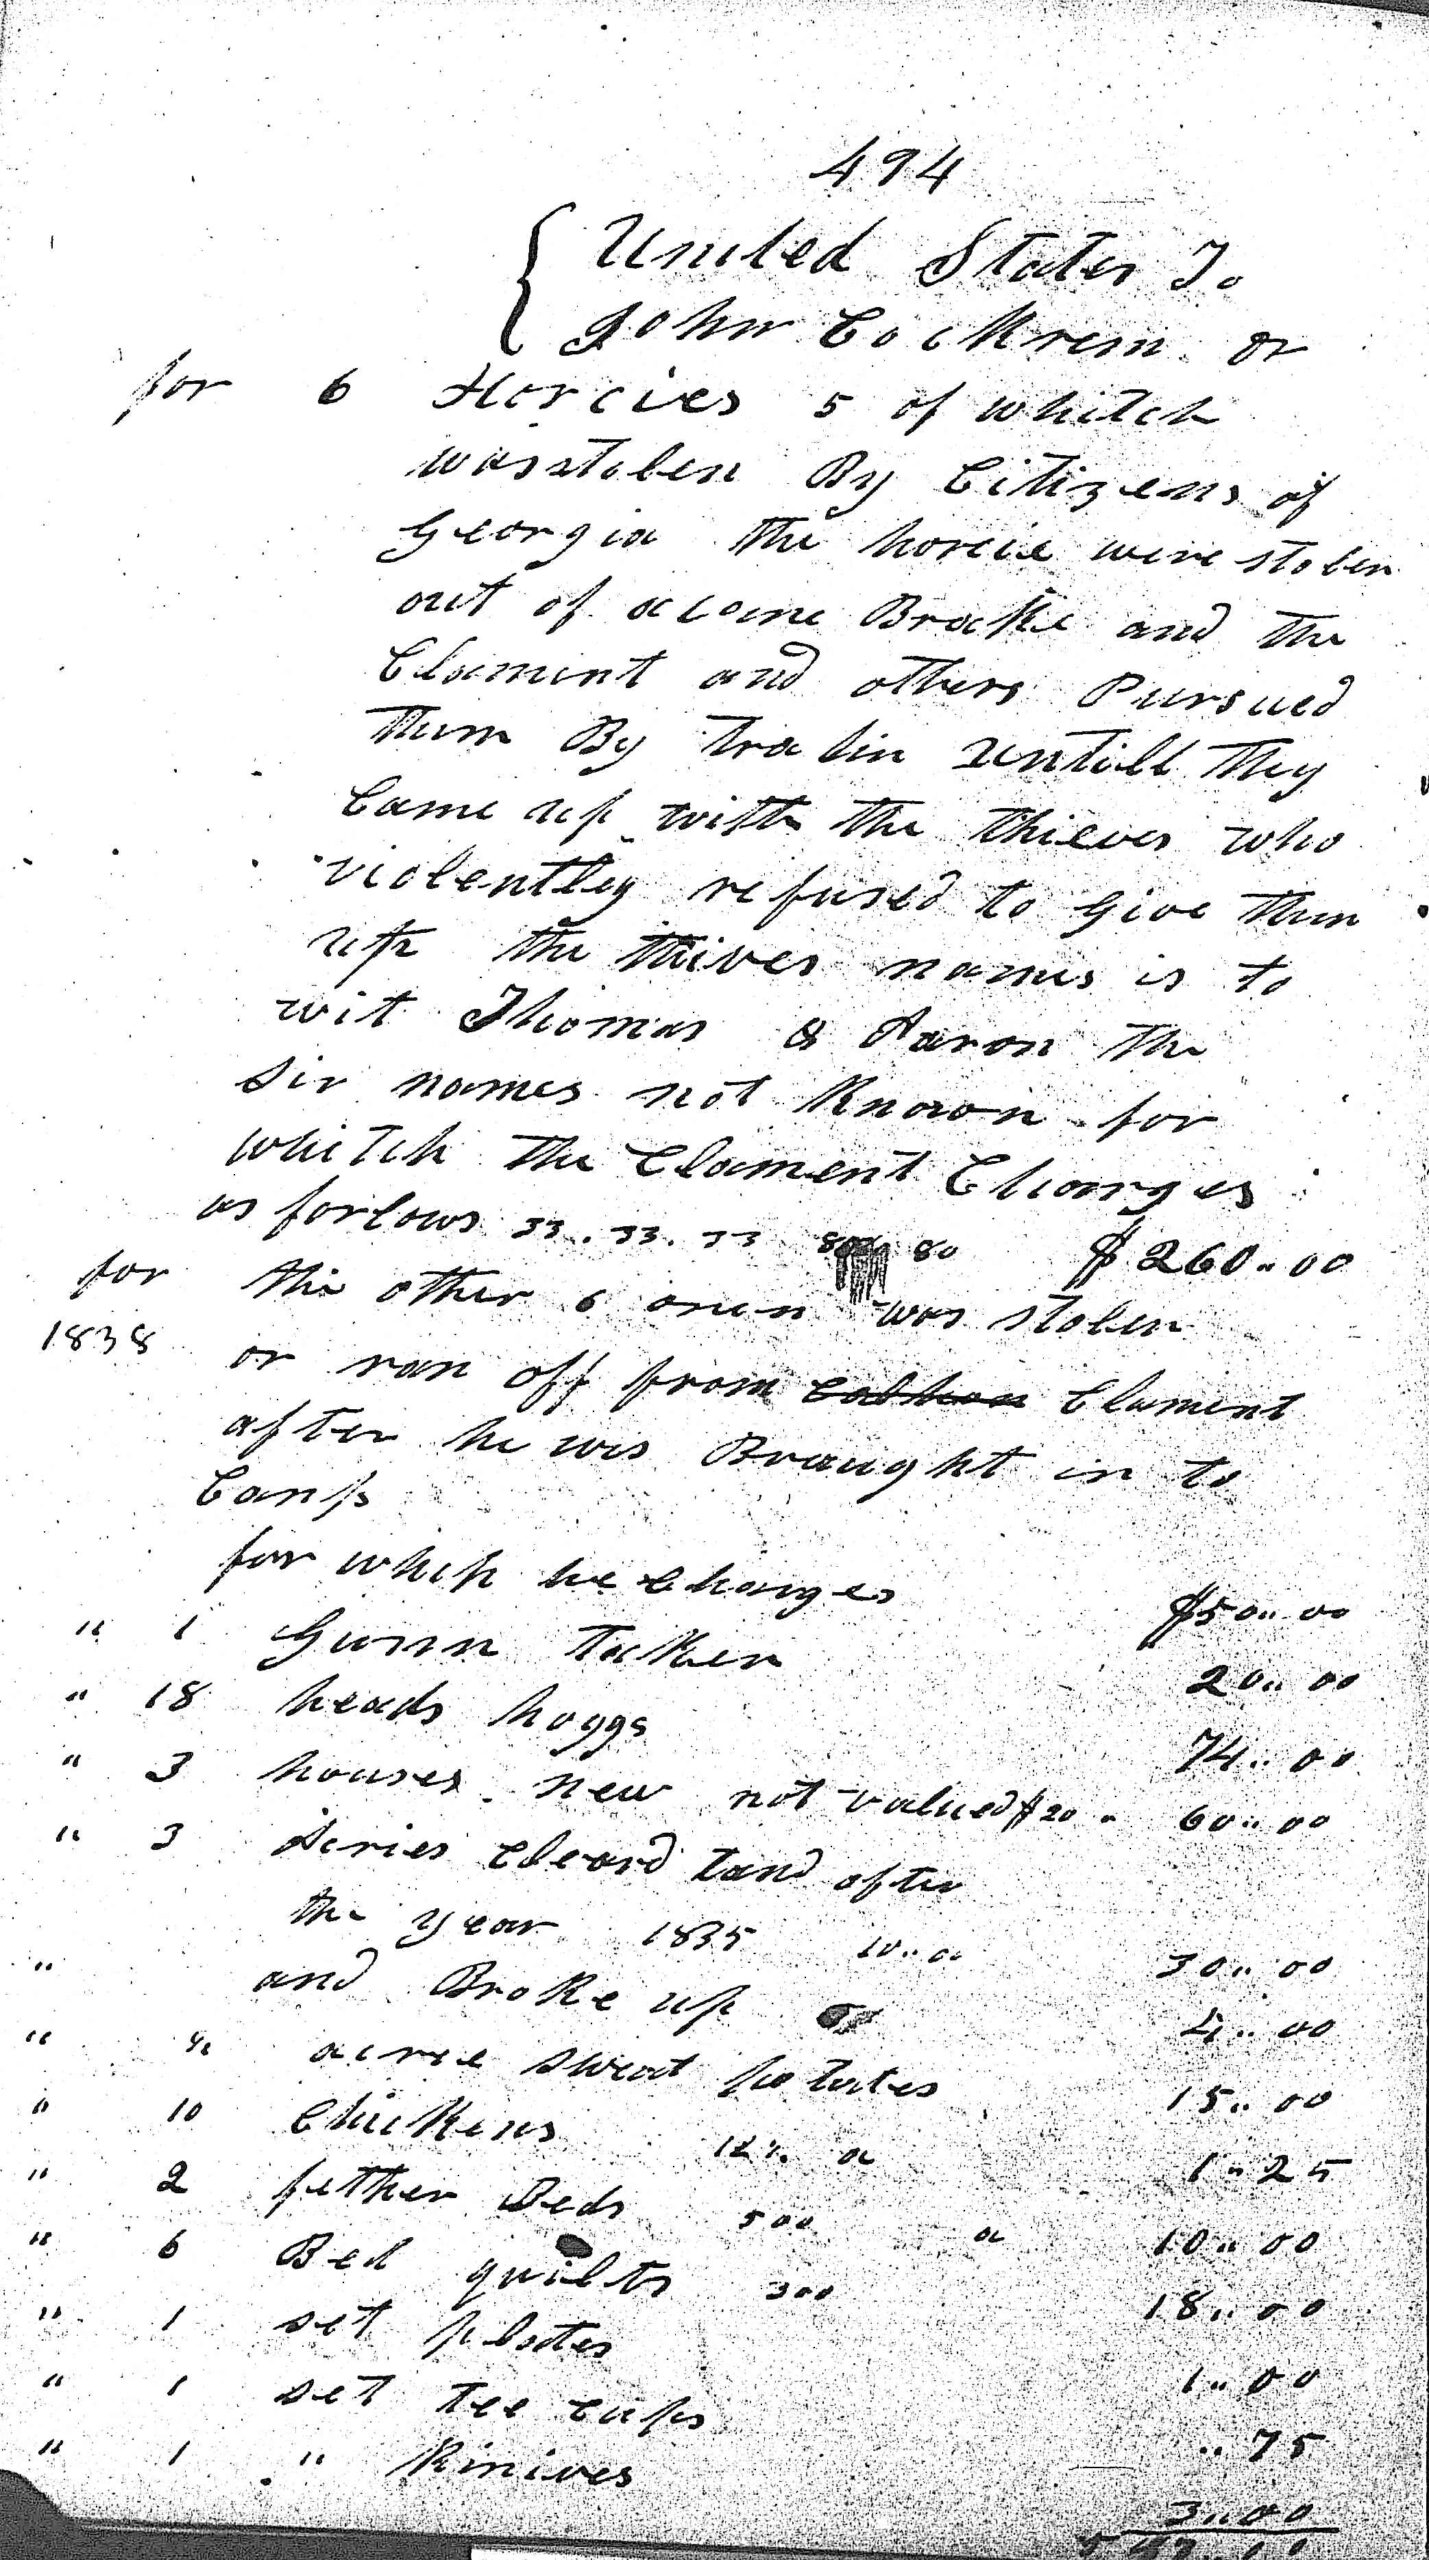 494
United States To
John Cockrem Dr
for 6 Horcies 5 of whitch
was stolen By Citizens of
Georgia the horcie were stolen
out of a cane Brake and the
Clament and others Pursued
them By tralin untill they
Came up with the thieves who
violently refused to Give them
up the thives names is to
wit Thomas & Aaron the
Sir names not Known for
whitch the Clament Charges
as forlows 33. 33. 33 80 $260..00
for the other 6 onen was stolen
1838 or ran off from Clament
after he was Braught in to
Camp
for which he Charges $50..00
" 1 Gunn taken 20..00
" 18 heads hoggs 74..00
" 3 houses new not valued $20 " 60..00
" 3 Acries Cleard land after
the year 1835 10..00 30..00
" and Broke up 4..00
" acree sweat potates 15..00
" 10 Chickens 12½ a 1..25
" 2 fether Beds 500 a 10..00
" 6 Bed quilts 300 18..00
" 1 set plates 1..00
" 1 set tee cups ..75
" 1 " Kinives 3..00